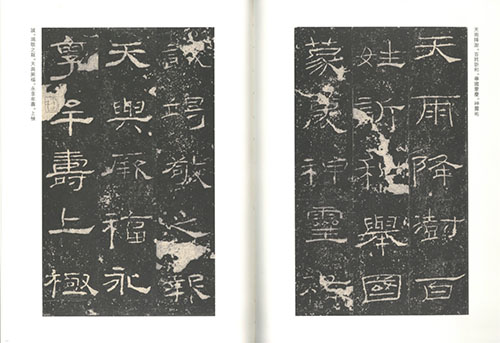 天雨降澍。百姓訢和。舉國蒙慶。神靈祐
天雨降澍百
姓訢和舉國
蒙慶神靈祐
誠竭敬之報
天與厥福永
享牟壽上極
誠。竭敬之報。天與厥福。永享牟壽。上極